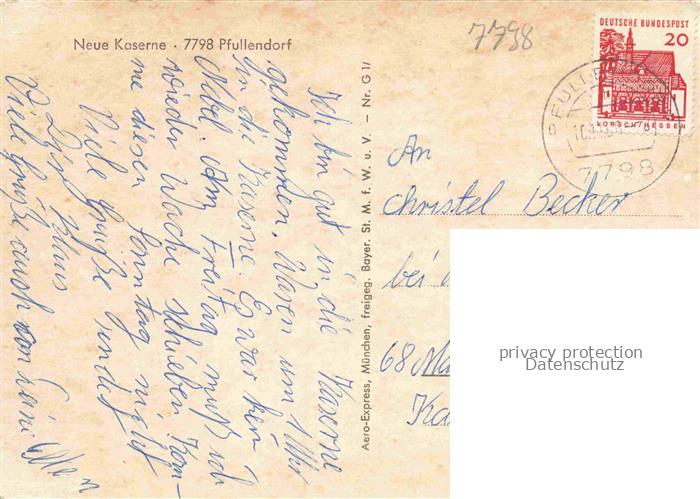 Neue Kaserne · 7798 Pfullendorf
7798
DEUTSCHE BUNDESPOST
20
LORSCH/HESSEN
7798
Ich bin gut in die Kaserne
gekommen. Waren um 1 Uhr
in die Kaserne. Es war kein
Nebel. Am Freitag muß ich
wieder Wache schieben. Kom-
me diesen Sonntag nicht
Viele Grüße sendet
Dir Klaus
Viele Grüße auch von
Aero-Express, München, freigeg. Bayer. St. M. f. W. u. V. – Nr. G 1/
An
Christel Becker
bei
68
privacy protection
Datenschutz